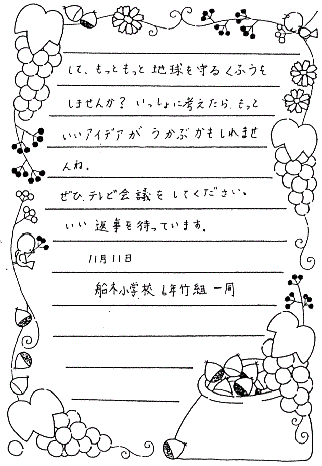 して、もっともっと地球を守るくふうを
しませんか？いっしょに考えたら、もっと
いいアイデアがうかぶかもしれませ
んね。
ぜひ、テレビ会議をしてください。
いい返事を待っています。
11月11日
船木小学校 6年竹組 一同